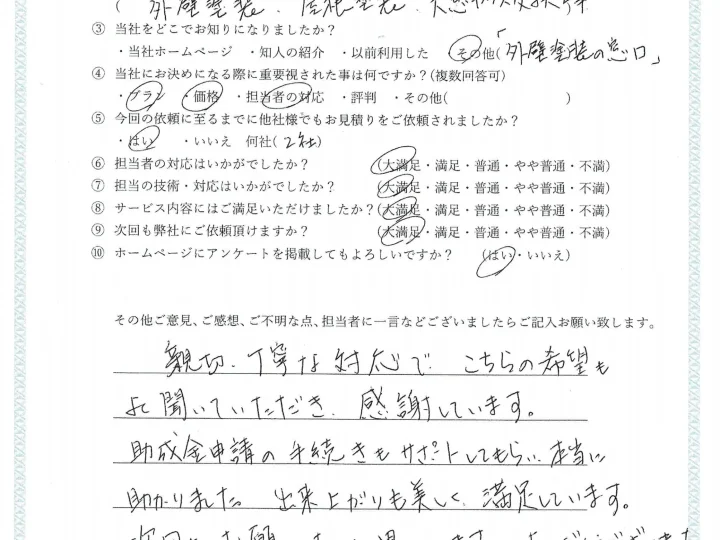 ( 外壁塗装、屋根塗装
③ 当社をどこでお知りになりましたか?
・当社ホームページ ・知人の紹介 ・以前利用した ・その他(「外壁塗装の窓口」
④ 当社にお決めになる際に重要視された事は何ですか?(複数回答可)
・プラン ・価格 ・担当者の対応 ・評判 ・その他( )
⑤ 今回の依頼に至るまでに他社様でもお見積りをご依頼されましたか?
・はい ・いいえ 何社( 2社)
⑥ 担当者の対応はいかがでしたか? (大満足・満足・普通・やや普通・不満)
⑦ 担当の技術・対応はいかがでしたか? (大満足・満足・普通・やや普通・不満)
⑧ サービス内容にはご満足いただけましたか?(大満足・満足・普通・やや普通・不満)
⑨ 次回も弊社にご依頼頂けますか? (大満足・満足・普通・やや普通・不満)
⑩ ホームページにアンケートを掲載してもよろしいですか? (はい・いいえ)
その他ご意見、ご感想、ご不明な点、担当者に一言などございましたらご記入お願い致します。
親切、丁寧な対応で、こちらの希望も
よく聞いていただき、感謝しています。
助成金申請の手続きもサポートしてもらい、本当に
助かりました。出来上がりも美しく、満足しています。